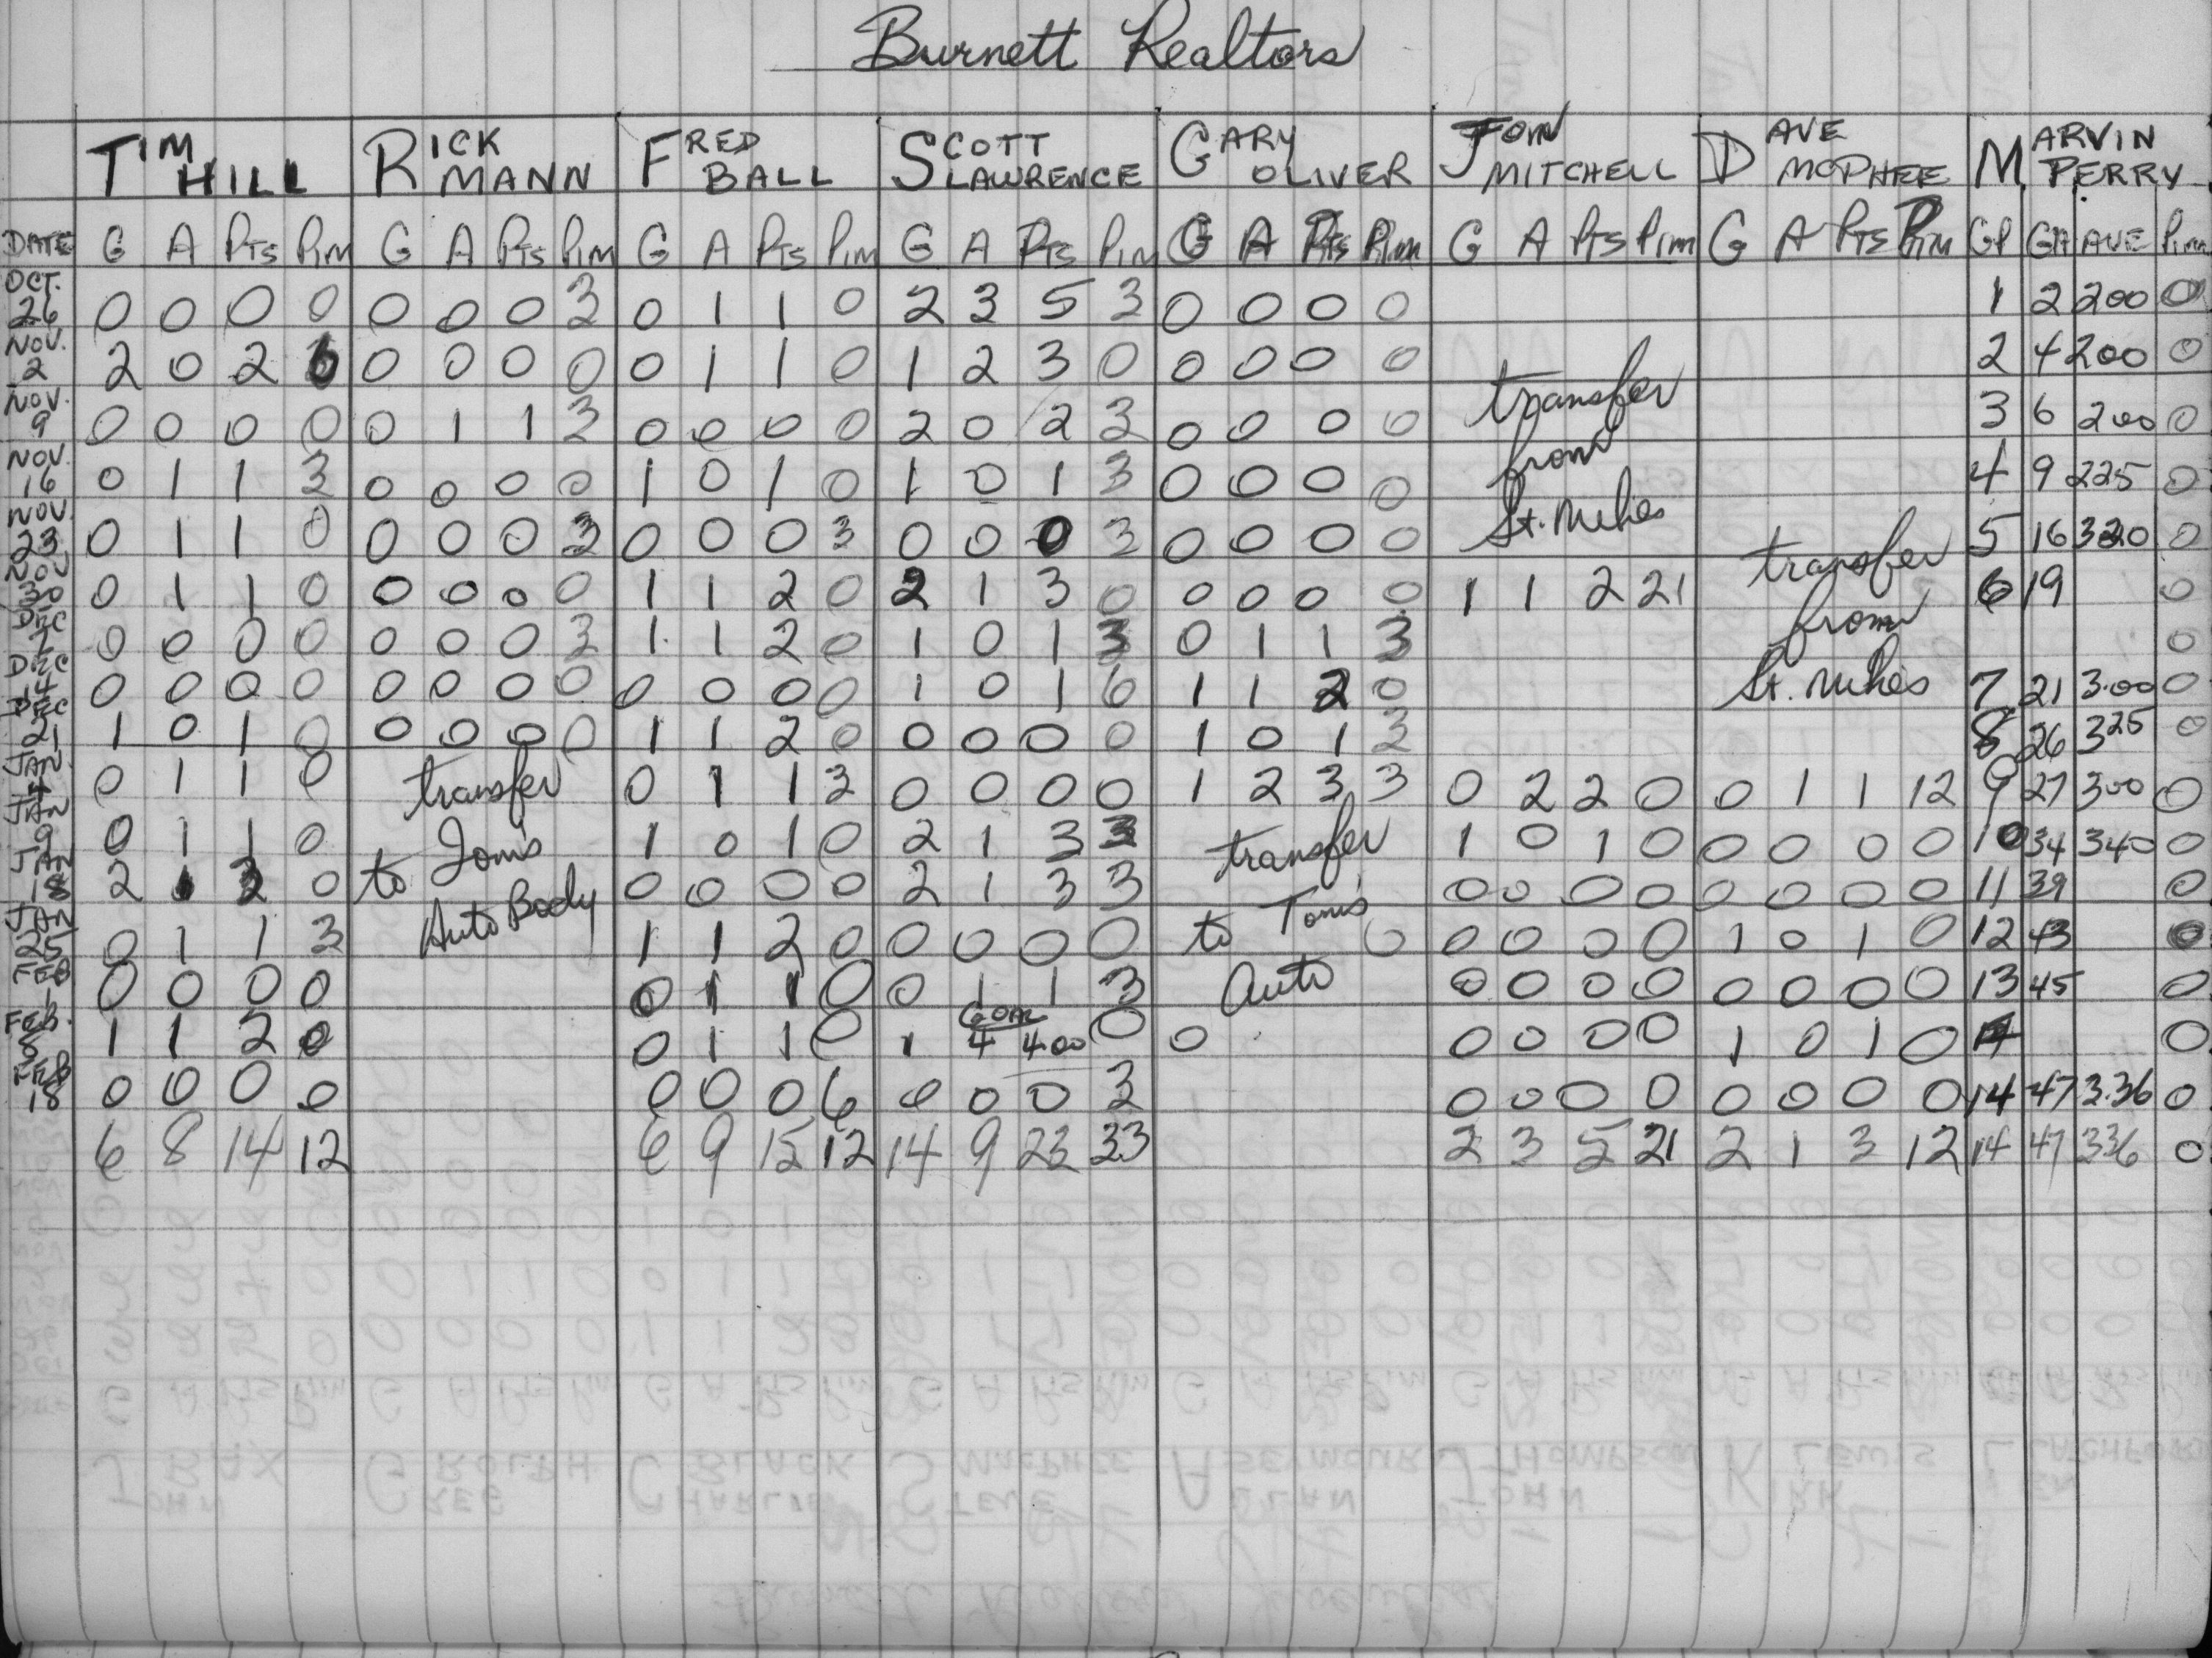 Burnett Realtors
TIM HILL RICK MANN FRED BALL SCOTT LAWRENCE GARY OLIVER JOHN MITCHELL DAVE MCPHEE MARVIN PERRY
DATE G A PTS PIM G A PTS PIM G A PTS PIM G A PTS PIM G A PTS PIM G A PTS PIM G A PTS PIM GP GA AVE PIM
OCT. 26 0 0 0 0 0 0 0 3 0 1 1 0 2 3 5 3 0 0 0 0 1 2 200 0
NOV. 2 2 0 2 6 0 0 0 0 0 1 1 0 1 2 3 0 0 0 0 0 2 4 200 0
NOV. 9 0 0 0 0 0 1 1 3 0 0 0 0 2 0 2 3 0 0 0 0 transfer 3 6 200 0
NOV. 16 0 1 1 3 0 0 0 0 1 0 1 0 1 0 1 3 0 0 0 0 from 4 9 225 0
NOV. 23 0 1 1 0 0 0 0 3 0 0 0 3 0 0 0 3 0 0 0 0 St. Mikes 5 16 320 0
NOV 30 0 1 1 0 0 0 0 0 1 1 2 0 2 1 3 0 0 0 0 0 1 1 2 21 transfer 6 19 0
DEC 7 0 0 0 0 0 0 0 3 1 1 2 0 1 0 1 3 0 1 1 3 from 0
DEC 14 0 0 0 0 0 0 0 0 0 0 0 0 1 0 1 6 1 1 2 0 St. Mikes 7 21 3.00 0
DEC 21 1 0 1 0 0 0 0 0 1 1 2 0 0 0 0 0 1 0 1 3 8 26 325 0
JAN. 4 0 1 1 0 transfer 0 1 1 3 0 0 0 0 1 2 3 3 0 2 2 0 0 1 1 12 9 27 300 0
JAN 9 0 1 1 0 to Tom's 1 0 1 0 2 1 3 3 transfer 1 0 1 0 0 0 0 0 10 34 340 0
JAN 18 2 1 3 0 Auto Body 0 0 0 0 2 1 3 3 to Tom's 0 0 0 0 0 0 0 0 11 39 0
JAN 25 0 1 1 3 1 1 2 0 0 0 0 0 Auto 0 0 0 0 0 1 0 1 0 12 43 0
FEB 1 0 0 0 0 0 1 1 0 0 1 1 3 0 0 0 0 0 0 0 0 13 45 0
FEB. 8 1 1 2 0 0 1 1 0 GOAL 1 4 4.00 0 0 0 0 0 0 1 0 1 0 0
FEB 18 0 0 0 0 0 0 0 6 0 0 0 3 0 0 0 0 0 0 0 0 14 47 3.36 0
6 8 14 12 6 9 15 12 14 9 23 33 2 3 5 21 2 1 3 12 14 47 336 0